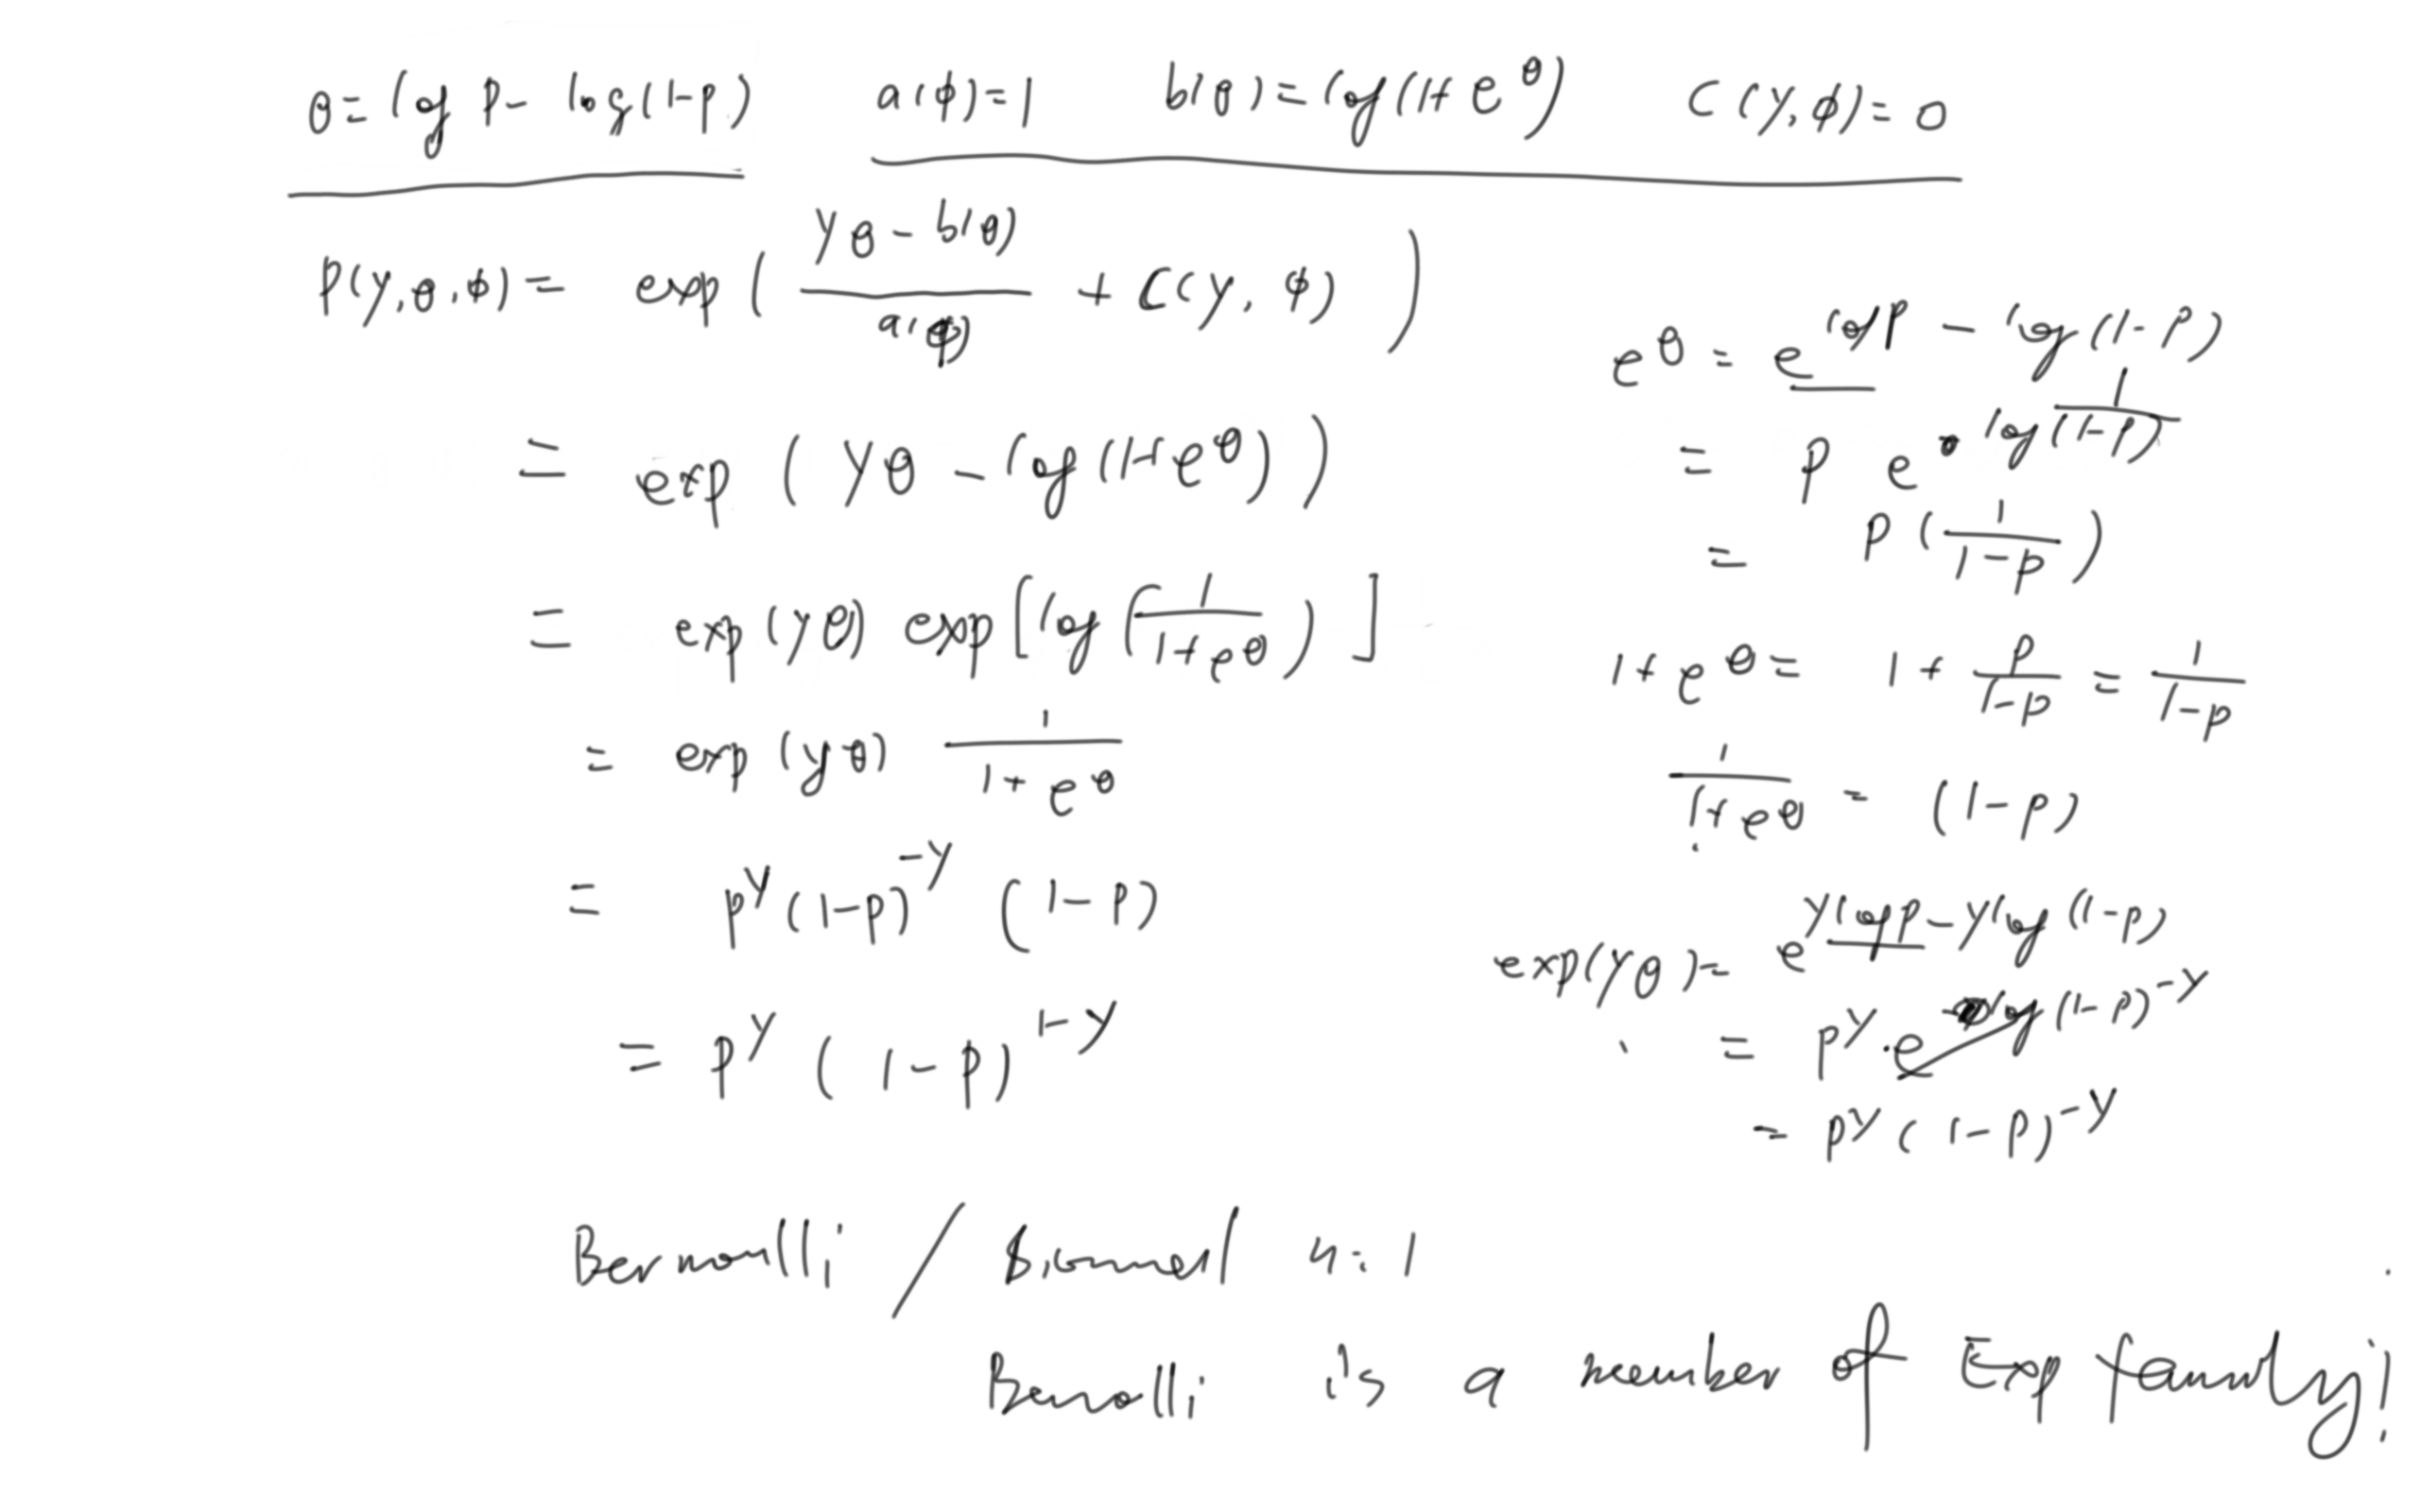 θ = log p - log(1-p)   a(φ) = 1   b(θ) = log(1+e^θ)   C(y, φ) = 0
P(y, θ, φ) = exp( (yθ - b(θ)) / a(φ) + C(y, φ) )
= exp( yθ - log(1+e^θ) )
= exp(yθ) exp[ log( 1 / (1+e^θ) ) ]
= exp(yθ) 1 / (1+e^θ)
= p^y (1-p)^-y (1-p)
= p^y (1-p)^1-y
e^θ = e^log p - log(1-p)
= p e^log 1/(1-p)
= p ( 1 / (1-p) )
1 + e^θ = 1 + p / (1-p) = 1 / (1-p)
1 / (1+e^θ) = (1-p)
exp(yθ) = e^y log p - y log(1-p)
= p^y · e^log(1-p)^-y
= p^y (1-p)^-y
Bernoulli / Binomial n=1
Bernoulli is a member of Exp family!